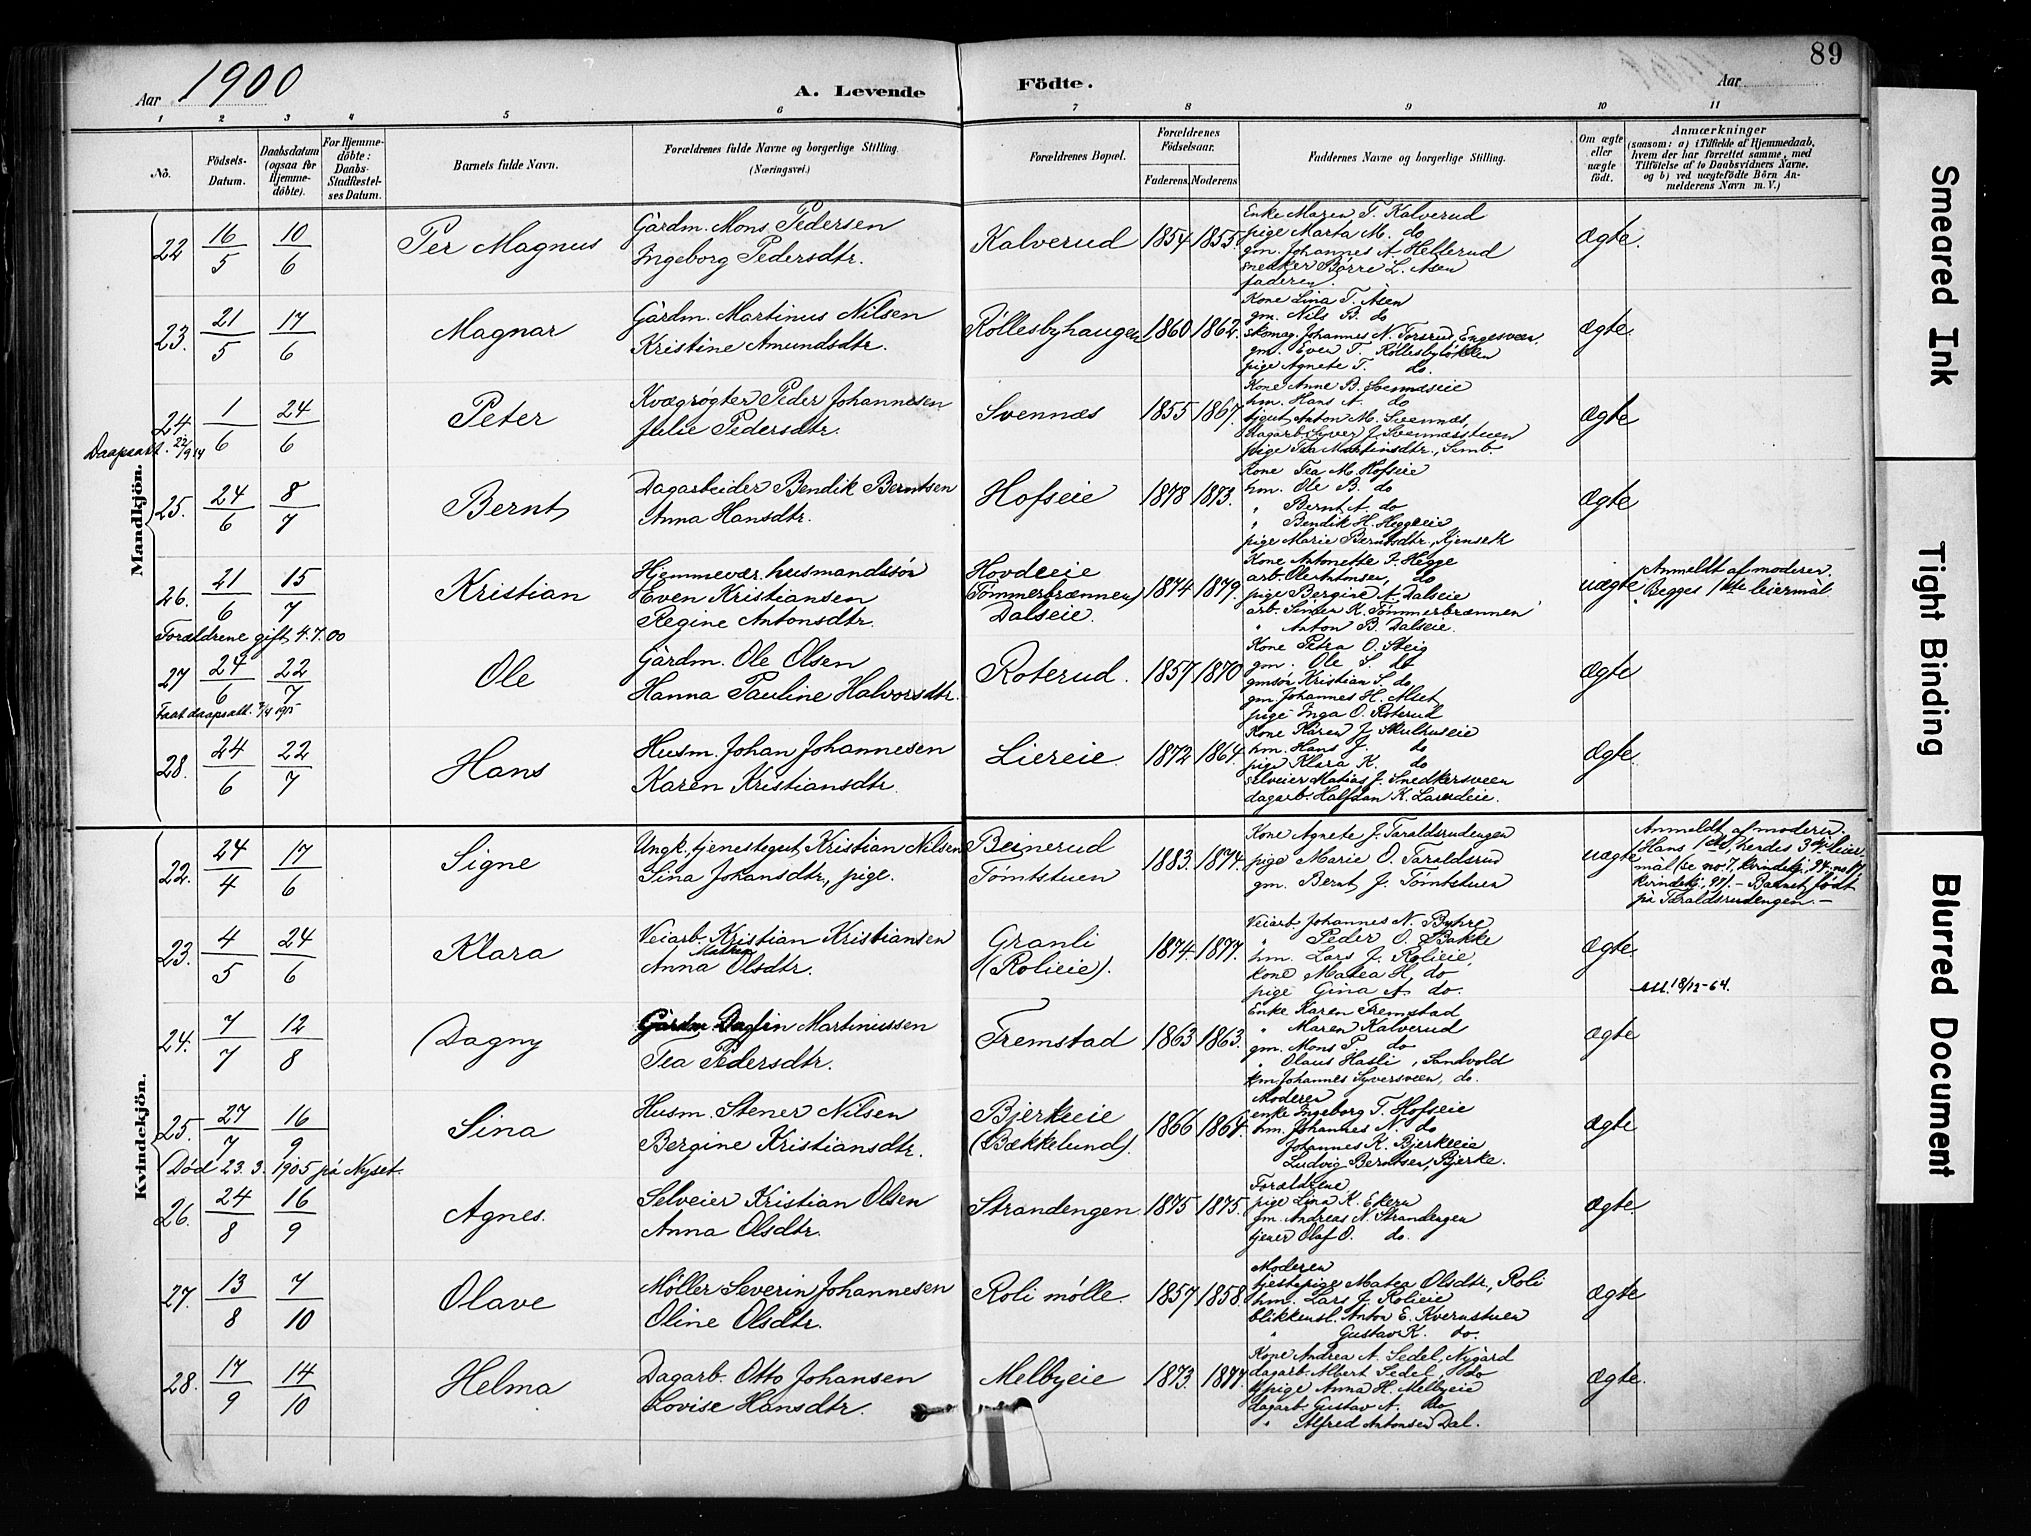 89
Aar 1900
A. Levende Födte.
Aar
1 2 3 4 5 6 7 8 9 10 11
No.
Födsels-Datum.
Daabsdatum (ogsaa for Hjemme-döbte).
For Hjemme-döbte: Daabs-Stadfæstel-ses Datum.
Barnets fulde Navn.
Forældrenes fulde Navne og borgerlige Stilling. (Næringsvei.)
Forældrenes Bopæl.
Forældrenes Födselsaar.
Faderens Moderens
Faddernes Navne og borgerlige Stilling.
Om ægte eller uægte födt.
Anmærkninger
(saasom: a) i Tilfælde af Hjemmedaab,
hvem der har forrettet samme, med
Tilföielse af to Daabsvidners Navne.
og b) ved uægtefödte Börn An-
melderens Navn m. V.)
Mandkjön.
22 16/5 10/6 Per Magnus
Gårdm. Mons Pedersen
Ingeborg Pedersdtr.
Kalverud 1854 1855.
Enke Maren T. Kalverud
pige Marta M. do
gm. Johannes A. Hellerud
snedker Børre L. Åsen
faderen.
ægte.
23. 21/5 17/6 Magnar
Gårdm. Martinus Nilsen
Kristine Amundsdtr.
Røllesbyhaugen 1860 1862.
Kone Lina T. Åsen
gm. Nils B. do
skomag. Johannes N. Forsrud, Engesveen.
gm. Even T. Røllesbyløkken
pige Agnete T. do.
ægte.
24 1/6 24/6 Peter
Daapsatt. 22/9 54
Kvægrøgter Peder Johannesen
Julie Pedersdtr.
Svennæs 1855 1867.
Kone Anne B. Svennæseie
hm. Hans A. do
tjgut Anton M. Svennæs,
dagarb. Syver J. Svennæsstuen
pige Tea Martinsdtr., Semb.
ægte
25. 24/6 8/7 Bernt
Dagarbeider Bendik Berntsen
Anna Hansdtr.
Hofseie 1878 1873.
Kone Tea M. Hofseie
hm. Ole B. do
" Bernt A. do
" Bendik H. Heggeeie
pige Marie Berntsdtr., Kjenseth
ægte
26. 21/6 15/7 Kristian
Forældrene gift 4.7.00
Hjemmevær. husmandssøn
Even Kristiansen
Regine Antonsdtr.
Hovdeeie
(Tømmerbrænnen)
Dalseie.
1874 1879.
Kone Antonette F. Hegge
arb. Ole Antonsen, do
pige Bergine A. Dalseie
arb. Simen K. Tømmerbrænnen
" Anton B. Dalseie.
uægte
Anmeldt af moderen.
Begges 1ste leiermål.
27 24/6 22/7 Ole
Faat daapsatt. 7/4 1915
Gårdm. Ole Olsen
Hanna Pauline Halvorsdtr.
Roterud. 1857 1870
Kone Petra O. Steig
gm. Ole S. do
gmsøn Kristian S. do,
gm. Johannes H. Alset,
pige Inga O. Roterud
ægte
28. 24/6 22/7 Hans
Husm. Johan Johannesen
Karen Kristiansdtr.
Liereie 1872 1864.
Kone Karen J. Skulhuseie
hm. Hans J. do
pige Klara K. do
selveier Matias J. Snedkersveen
dagarb. Halfdan K. Larsdeie.
ægte.
Kvindekjön.
22. 24/4 17/6 Signe
Ungk. tjenestegut Kristian Nilsen
Lina Johansdtr., pige.
Beinerud
Tømtstuen
1883. 1874.
Kone Agnete J. Taraldsrudengen
pige Marie O. Taraldsrud
gm. Bernt J. Tømtstuen
uægte
Anmeldt af moderen.
Hans 1ste, hendes 3dje leier-
mål (se no 7, kvindekj., 94, no 17,
kvindekj., 97). – Barnet født
på Taraldsrudengen. –
23. 4/5 24/6 Klara
Veiarb. Kristian Kristiansen
Mathea
Anna Olsdtr.
Granli
(Rolieie).
1874 1877.
Veiarb. Johannes N. Byhre
" Peder O. Bakke
hm. Lars J. Rolieie,
kone Matea H. do
pige Gina A. do.
ægte
att. 18/12-64.
24. 7/7 12/8 Dagny
Gårdm. Dagfin Martinussen
Tea Pedersdtr.
Fremstad 1863 1863.
Enke Karen Fremstad
" Maren Kalverud
gm. Mons T. do
" Olaus Hasli, Sandvold
km. Johannes Syversveen, do.
ægte
25. 27/7 16/9 Sina
Død 23.3.1905 på Nyset.
Husm. Stener Nilsen
Bergine Kristiansdtr.
Bjerkeeie
(Bækkelund).
1866 1864.
Moderen
enke Ingeborg T. Hofseie
hm. Johannes N. do
Johannes K. Bjerkeeie
Ludvig Berntsen, Bjerke.
ægte
26. 24/8 16/9 Agnes.
Selveier Kristian Olsen
Anna Olsdtr.
Strandengen. 1875 1875.
Forældrene
pige Lina K. Ekern
gm. Andreas N. Strandengen
tjener Olaf O. do.
ægte.
27. 13/8 7/10 Olave
Møller Severin Johannesen
Oline Olsdtr.
Roli mølle. 1857 1858
Moderen
tjestepige Matea Olsdtr., Roli
hm. Lars J. Rolieie
blikkensl. Anton E. Kvernstuen
" Gustav K. do.
ægte
28. 17/9 14/10 Helma
Dagarb. Otto Johansen
Lovise Hansdtr.
Melbyeie 1873. 1877.
Kone Andrea A. Sedel, Nygård
dagarb. Albert Sedel, do
tjpige Anna H. Melbyeie
dagarb. Gustav A. do
" Alfred Antonsen, Dal.
ægte.
Smeared Ink
Tight Binding
Blurred Document